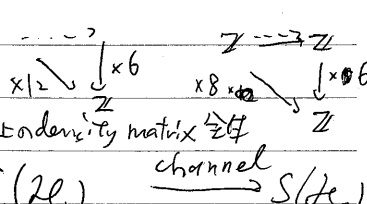 Z ---> Z
×12 ×6 ×8 ×6
Z Z
density matrix 全体
channel
S(